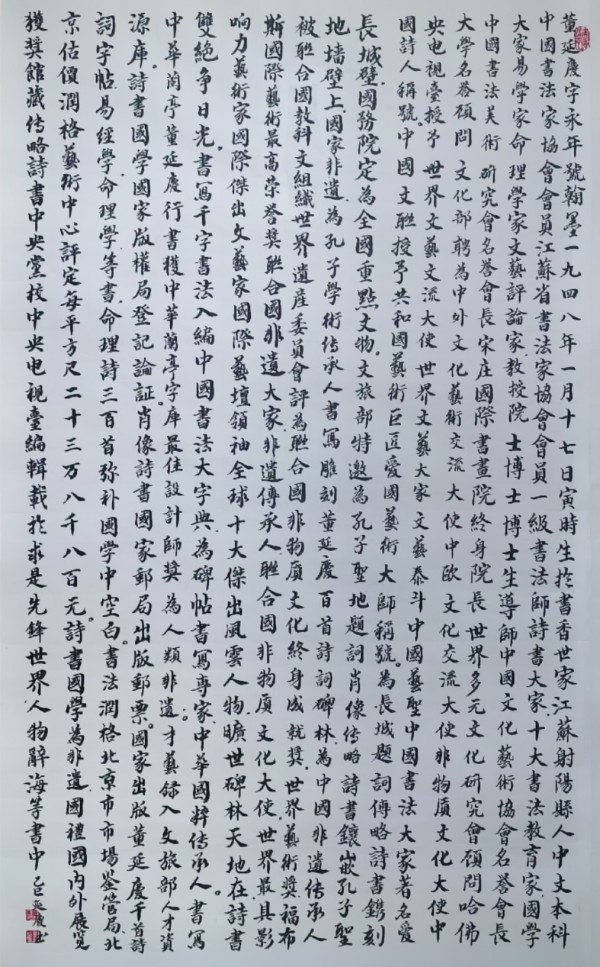 董延慶字永年號翰墨一九四八年一月十七日寅時生於書香世家江蘇射陽縣人中文本科
中國書法家協會會員江蘇省書法家協會會員一級書法師詩書大家十大書法教育家國學
大家易學家命理學家文藝評論家教授院士博士博士生導師中國文化藝術協會名誉會長
中國書法美術研究會名誉會長宋庄國際書畫院終身院長世界多元文化研究會顧問哈佛
大學名誉顧問文化部聘為中外文化藝術交流大使中欧文化交流大使非物质文化大使中
央电視臺授予世界文藝文流大使世界文藝大家文藝泰斗中國藝聖中國書法大家著名愛
國詩人稱號中國文联授予共和國藝術巨匠愛國藝術大師稱號為長城題詞傳略詩書鐫刻
長城壁國務院定為全國重點文物文旅部特邀為孔子聖地題詞肖像传略詩書鑲嵌孔子聖
地墙壁上國家非遺為孔子學術传承人書寫雕刻董延慶百首詩詞碑林為中國非遺传承人
被联合國教科文組織世界遺産委員會評為联合國非物质文化终身成就獎世界藝術獎福布
斯國際藝術最高荣誉獎联合國非遗大家非遗傳承人联合國非物质文化大使世界最具影
响力藝術家國際傑出文藝家國際藝壇領袖全球十大傑出風雲人物曠世碑林天地在詩書
雙絶争日光書寫千字書法入编中國書法大字典為碑帖書寫專家中华國粹传承人書寫
中华蘭亭董延慶行書獲中華蘭亭字库最佳設計師奖為人類非遗才藝錄入文旅部人才資
源库詩書國學國家版權局登記論証肖像詩書國家郵局出版郵票國家出版董延慶千首詩
詞字帖易經學命理學等書命理詩三百首弥补國學中空白書法润格北京市市場鉴管局北
京估價潤格藝術中心評定每平方尺二十三万八千八百元詩書國學為非遗國禮國内外展覽
獲奖館藏传略詩書中央党校中央电視臺編輯載於求是先鋒世界人物辭海等書中 延慶书